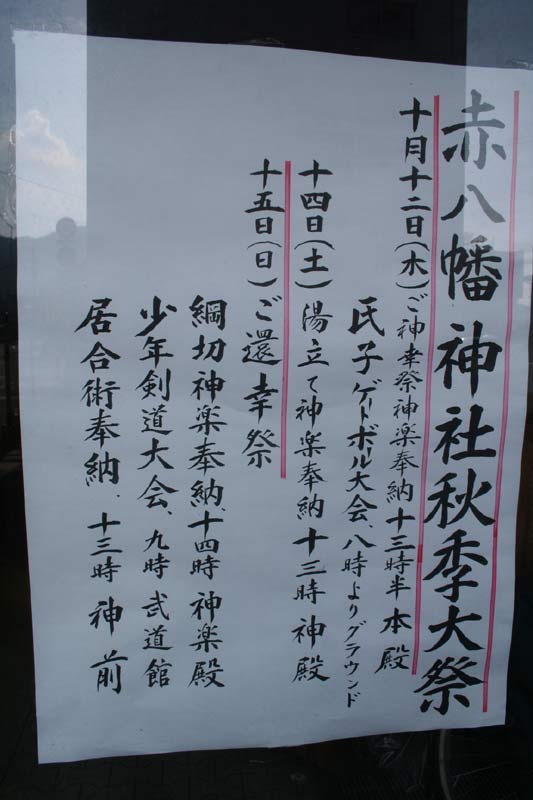 赤八幡神社秋季大祭
十月十二日(木)ご神幸祭神楽奉納十三時半本殿
氏子ゲートボール大会、八時よりグラウンド
十四日(土)湯立て神楽奉納十三時神殿
十五日(日)ご還幸祭
綱切神楽奉納、十四時神楽殿
少年剣道大会、九時武道館
居合術奉納、十三時神前